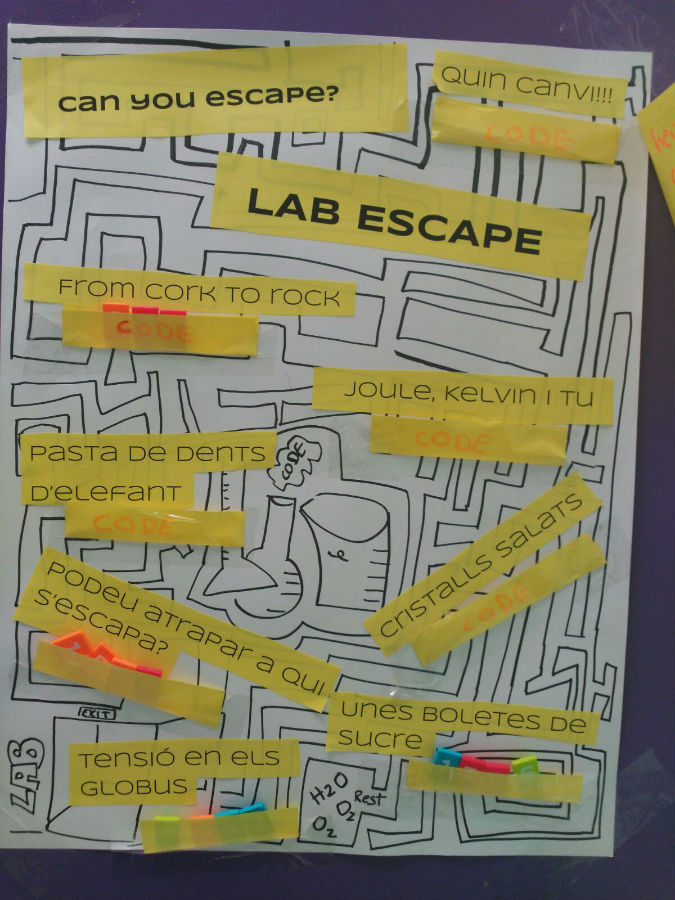 can you escape?
Quin canvi!!!
CODE
LAB ESCAPE
From cork to rock
CODE
Joule, Kelvin i tu
CODE
Pasta de dents
d'elefant
CODE
CODE
Cristalls salats
CODE
Podeu atrapar a qui
s'escapa?
Unes boletes de
sucre
EXIT
LAB
Tensió en els
globus
H2O
O2
Rest
O2